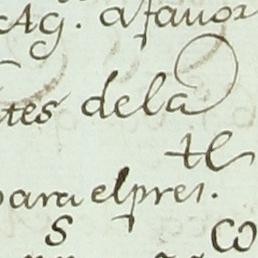 Ag. a favor
tes dela
tt
para el pres.
s co